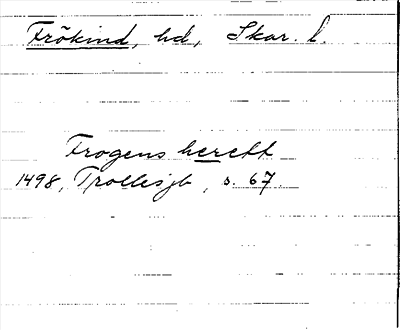 Frökind, hd, Skar. l.
Frogens herett
1498, Trollesjb, s. 67.